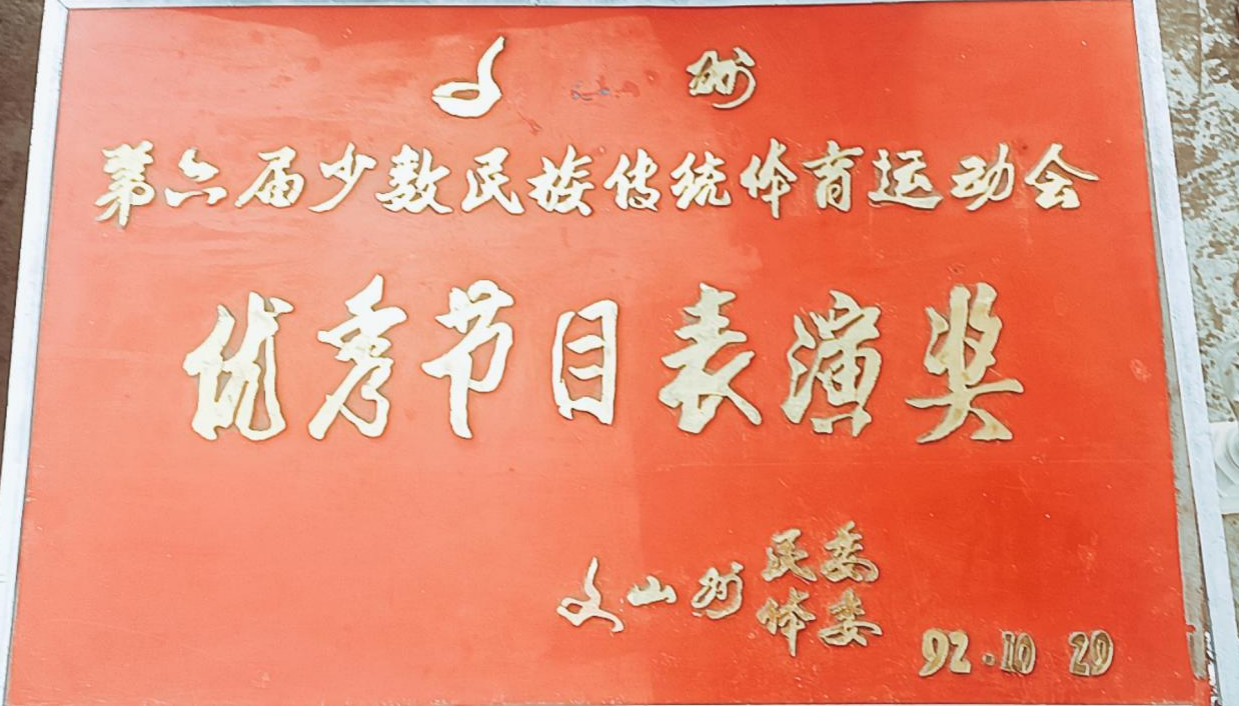 文 州
第六届少数民族传统体育运动会
优秀节目表演奖
文山州民委
体委
92·10 29